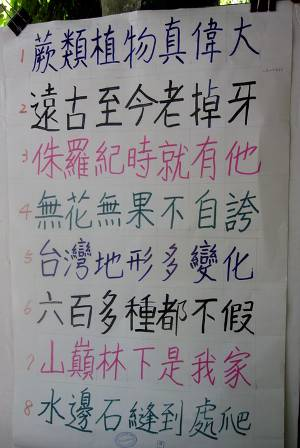 1 蕨類植物真偉大
2 遠古至今老掉牙
3 侏羅紀時就有他
4 無花無果不自誇
5 台灣地形多變化
6 六百多種都不假
7 山巔林下是我家
8 水邊石縫到處爬